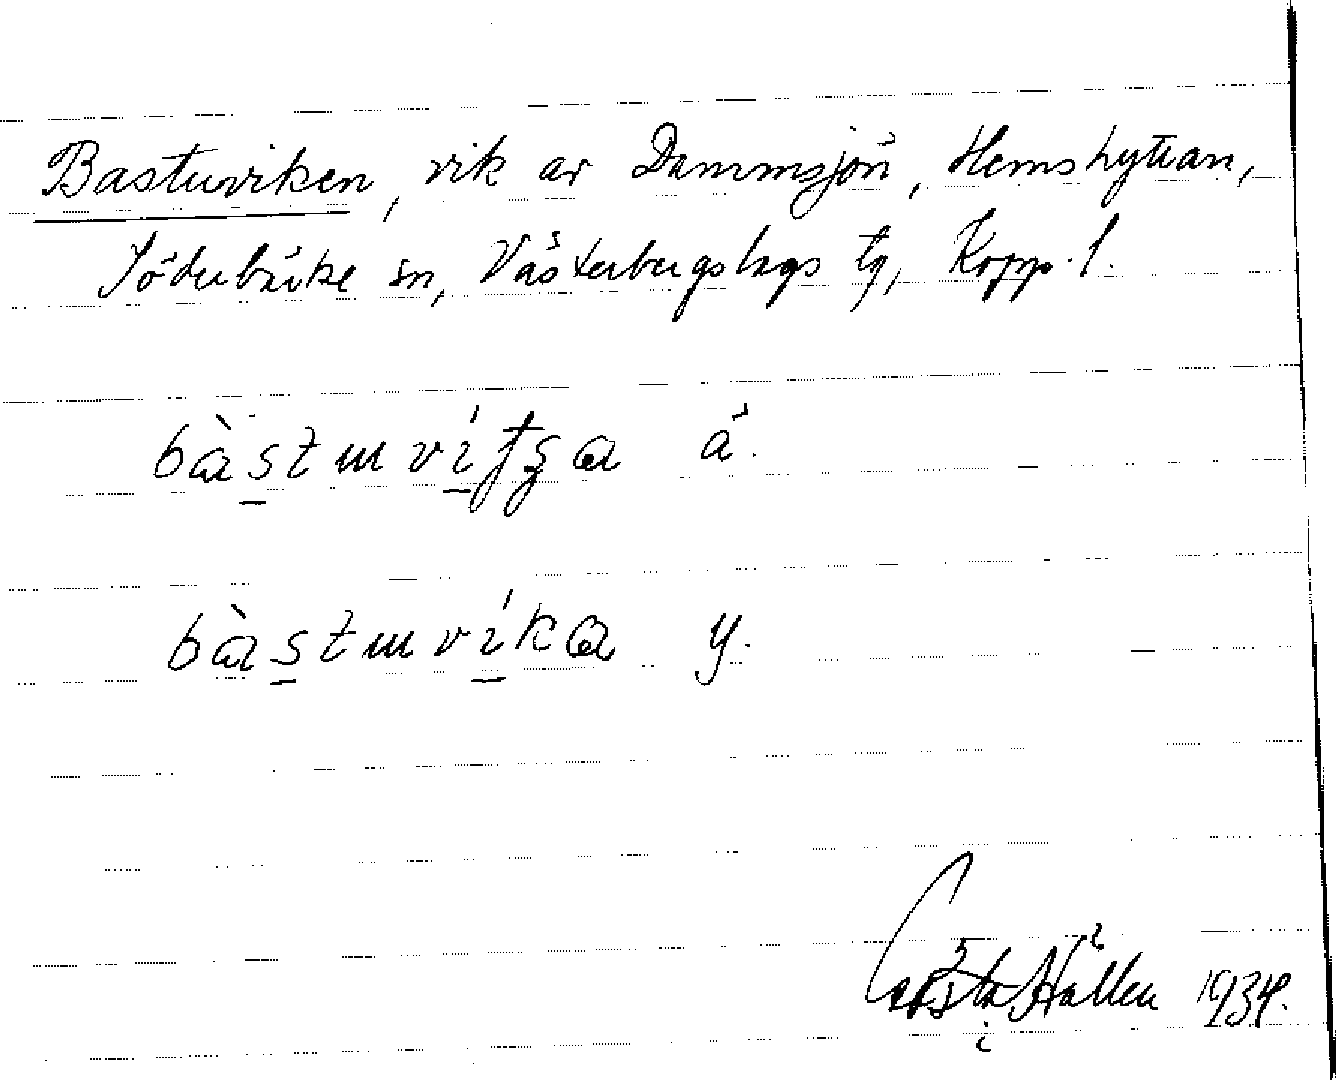 Bastuviken, vik av Dammsjön, Hemshyttan,
Söderbärke sn, Västerbergslags tg, Kopp. l.
bàstɯvítʂa ä.
bàstɯvíka y.
Gösta Hallén 1934.